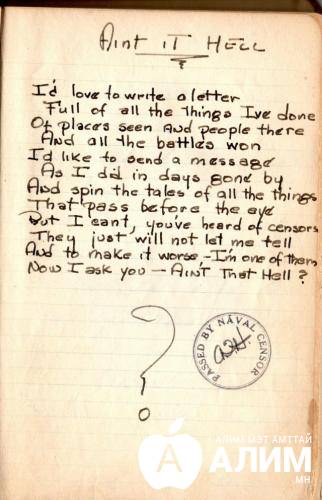 Aint IT HELL
I'd love to write a letter
Full of all the things I've done
Of places seen And people there
And all the battles won
I'd like to send a message
As I did in days gone by
And spin the tales of all the things
That pass before the eye
But I cant, you've heard of censors
They just will not let me tell
And to make it worse,-I'm one of them
Now I ask you — AINT That Hell?
?
PASSED BY NAVAL CENSOR
АЛИМ МЭТ АМТТАЙ
АЛИМ
.МН